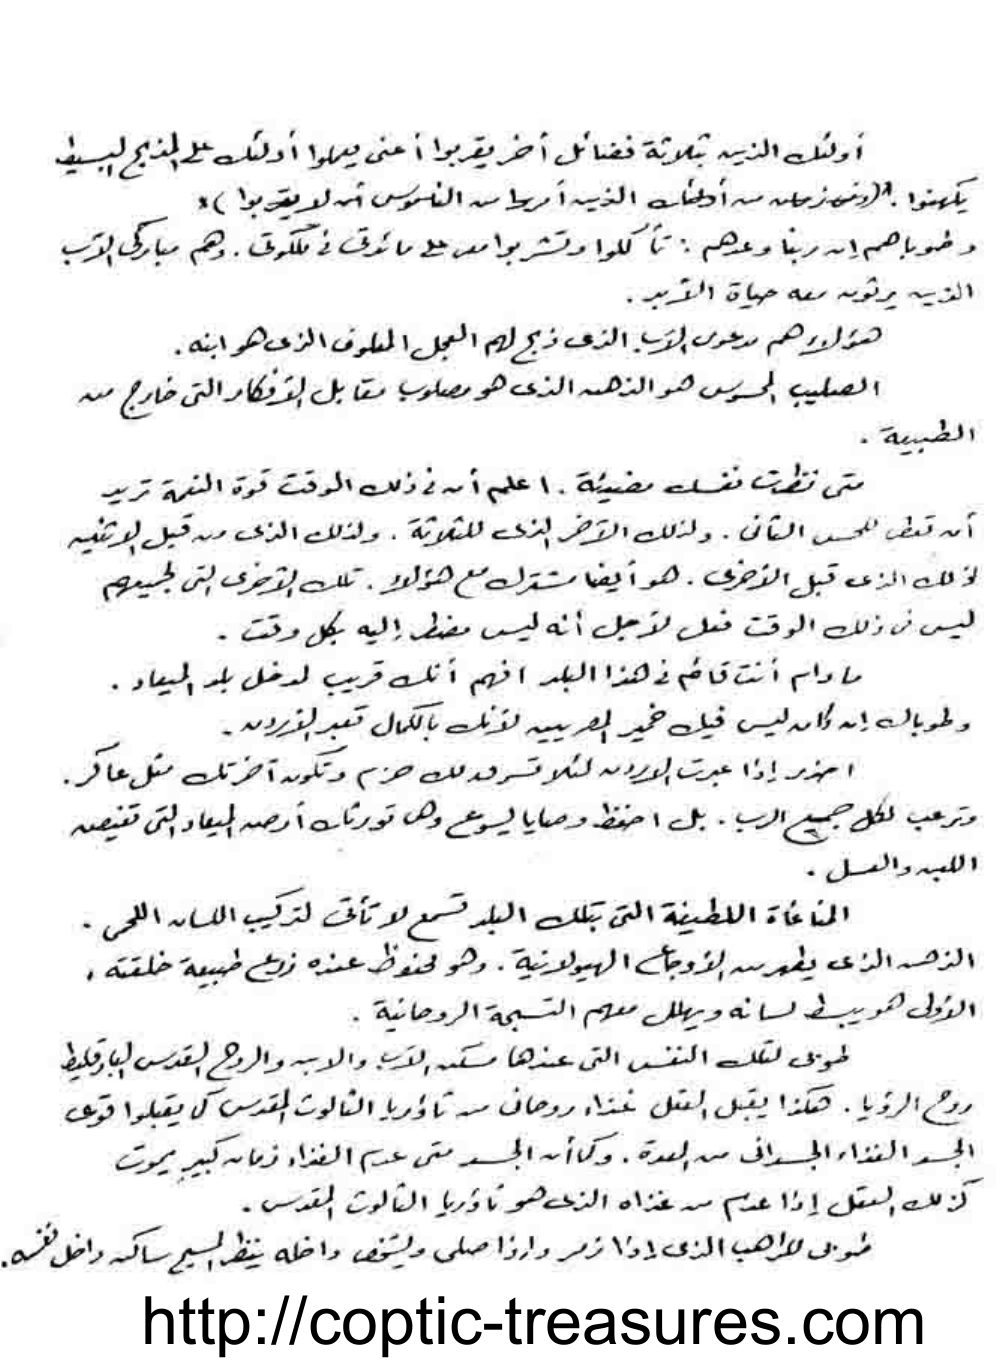 أولئك الذين بثلاثة فضائل أخر يقربوا أعنى يعملوا أولئك على المذبح البسيط
يكهنوا . (ومن زمان من أولئك الذين أمروا من الناموس أن لا يقربوا )
وطوباهم إن ربنا وعدهم : تأكلوا وتشربوا معى على مائدتى فى ملكوتى . وهم مباركى الآب
الذين يرثون معه حياة الأبد .
هؤلاء هم مدعوى الآب الذى ذبح لهم العجل المعلوف الذى هو ابنه .
الصليب المحسوس هو الذهن الذى هو مصلوب مقابل الأفكار التى خارج من
الطبيعة .
متى نظرت نفسك مضيئة . اعلم أن فى ذلك الوقت قوة النعمة تريد
أن تعطى للحس الثانى . ولذلك الآخر الذى للثلاثة . ولذلك الذى من قبل الاثنين
لذلك الذى قبل الأخرى . هو أيضا مشترك مع هؤلاء . تلك الأخرى التى لجميعهم
ليس فى ذلك الوقت فعل لأجل أنه ليس مضطر إليه بكل وقت .
ما دام أنت قائم فى هذا البلد افهم أنك قريب لدخل بلد الميعاد .
وطوباك إن كان ليس فيك خمير المصريين لأنك بالكمال تعبر الأردن .
احذر إذا عبرت الأردن لئلا تسرق لك حزم وتكون آخرتك مثل عاكر .
وترعب لكل جميع الرب . بل احفظ وصايا يسوع وهى تورثك أرض الميعاد التى تفيض
اللبن والعسل .
المناغاة اللطيفة التى بتلك البلد تسمع لا تأتى لتركيب اللسان اللحمى .
الذهن الذى يطهر من الأوجاع الهيولانية . وهو محفوظ عنده زرع طبيعة خلقته
الأولى هو يبسط لسانه ويهلل معهم التسبحة الروحانية .
طوبى لتلك النفس التى عندها مسكن الآب والابن والروح القدس البارقليط
روح الرؤيا . هكذا يقبل العقل غذاء روحانى من تاؤريا الثالوث المقدس كما يقبلوا قوى
الجسد الغذاء الجسدانى من المعدة . وكما أن الجسد متى عدم الغذاء زمان كبير يموت
كذلك العقل إذا عدم من غذاه الذى هو تاؤريا الثالوث المقدس .
طوبى للراهب الذى إذا زمر وإذا صلى داخله ينظر المسيح ساكن داخل نفسه .
http://coptic-treasures.com